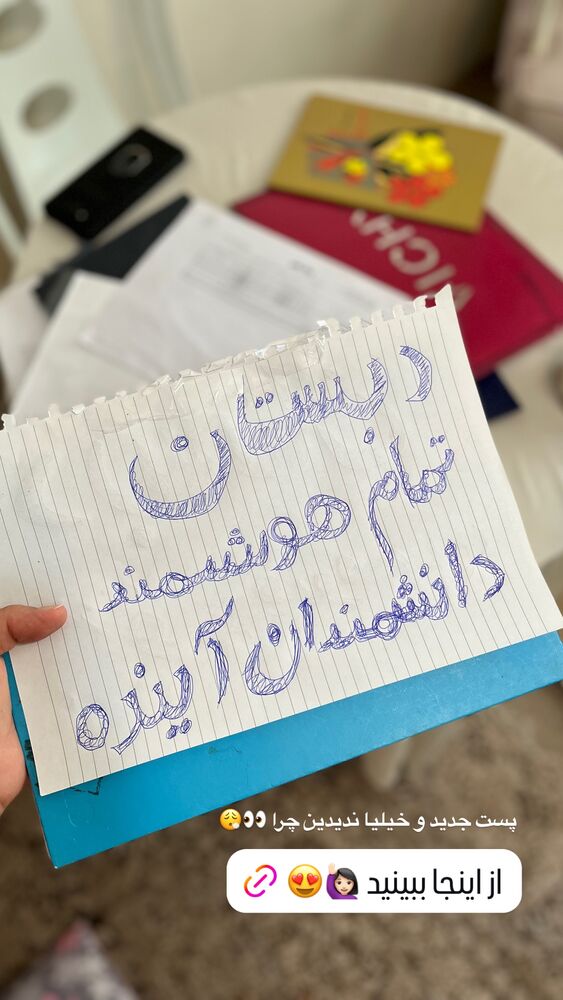 VICHY
دبستان
تمام هوشمند
دانشمندان آینده
پست جدید و خیلیا ندیدین چرا 👀😮‍💨
از اینجا ببینید 🙋🏻‍♀️😍